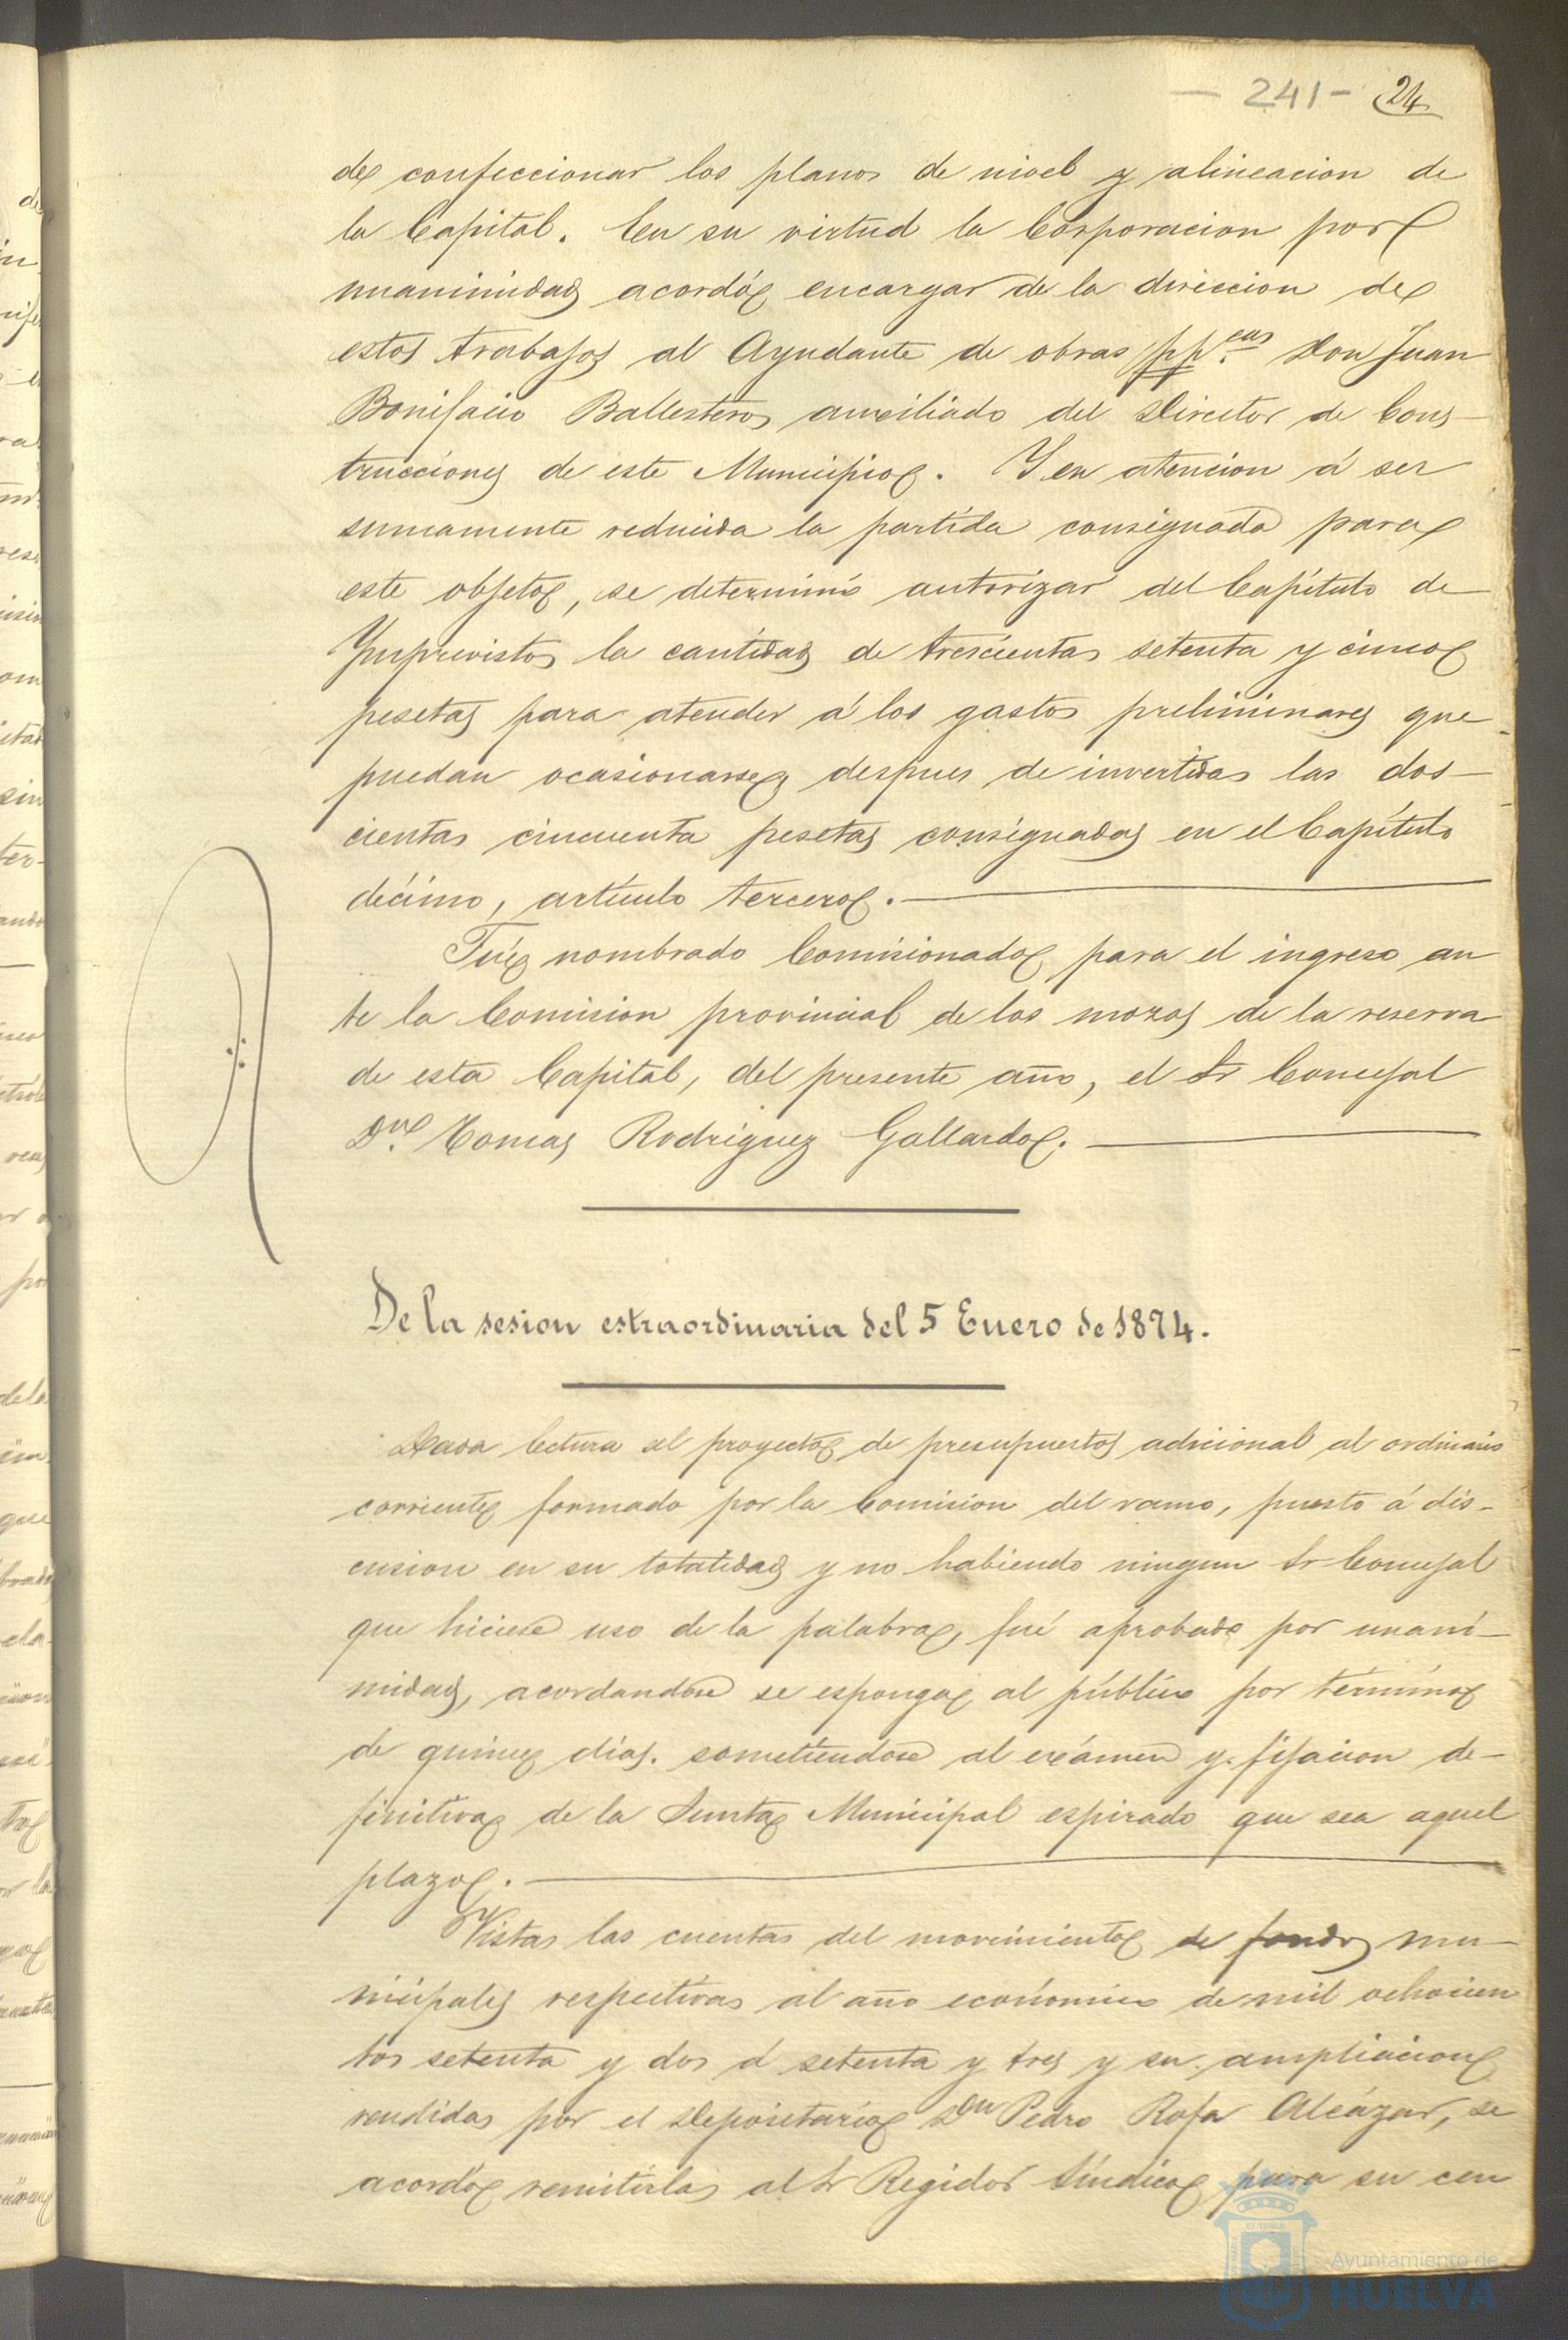 - 241 - 24
de confeccionar los planos de nivel y alineacion de
la Capital. En su virtud la Corporacion por
unanimidad acordó encargar de la direccion de
estos trabajos al Ayudante de obras pp.cas Don Juan
Bonifacio Ballesteros auxiliado del Director de Cons-
trucciones de este Municipio. Y en atencion á ser
sumamente reducida la partida consignada para
este objeto, se determinó autorizar del Capítulo de
Ymprevistos la cantidad de trescientas setenta y cinco
pesetas para atender á los gastos preliminares que
puedan ocasionarse despues de invertidas las dos-
cientas cincuenta pesetas consignadas en el Capítulo
décimo, artículo tercero.
Fué nombrado Comisionado para el ingreso an
te la Comision provincial de los mozos de la reserva
de esta Capital, del presente año, el Sr Concejal
Dn. Tomas Rodriguez Gallardo.
De la sesion estraordinaria del 5 Enero de 1874.
Dada lectura al proyecto de presupuestos adicional al ordinario
corriente formado por la Comision del ramo, puesto á dis-
cusion en su totalidad y no habiendo ningun Sr Concejal
que hiciese uso de la palabra, fué aprobado por unani-
midad, acordandose se esponga al público por término
de quince dias. sometiendose al exámen y fijacion de-
finitiva de la Junta Municipal espirado que sea aquel
plazo.
Vistas las cuentas del movimiento de fondos mu-
nicipales respectivas al año económico de mil ochocien
tos setenta y dos á setenta y tres y su ampliacion
rendidas por el Depositario Dn Pedro Rofa Alcázar, se
acordó remitirlas al Sr Regidor Síndico para su cen
Ayuntamiento de
HUELVA